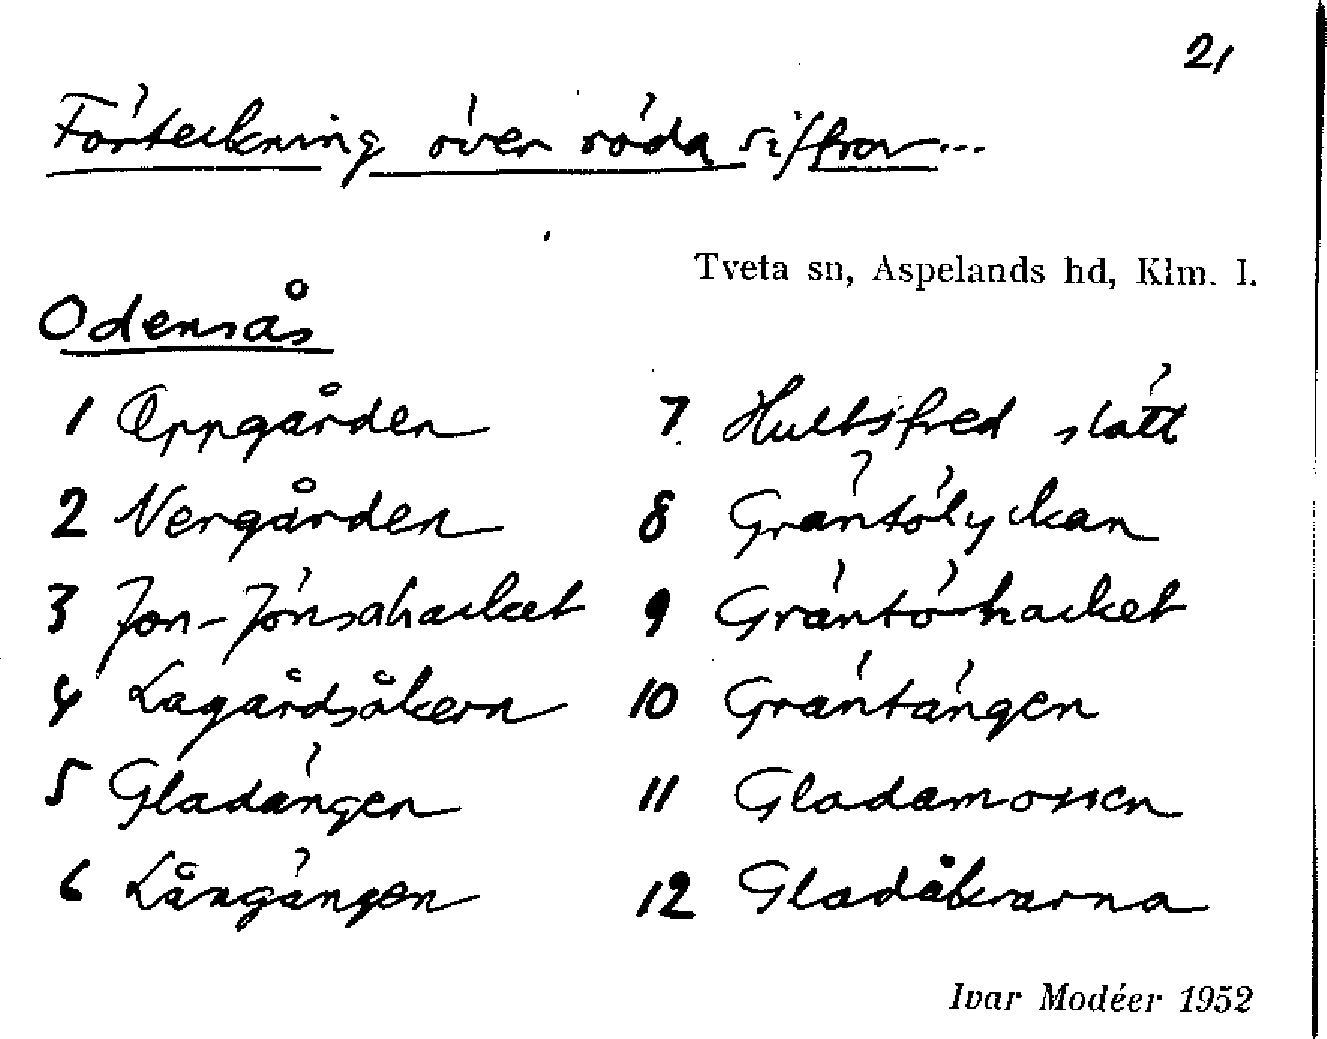 21
Förteckning över röda siffror...
Tveta sn, Aspelands hd, Klm. l.
Odensås
1 Oppgården
2 Nergården
3 Jon-Jönsahacket
4 Lagårdsåkern
5 Gladängen
6 Långängen
7 Hultsfred slätt
8 Gräntölyckan
9 Gräntöhacket
10 Gräntängen
11 Gladamossen
12 Gladåkrarna
Ivar Modéer 1952